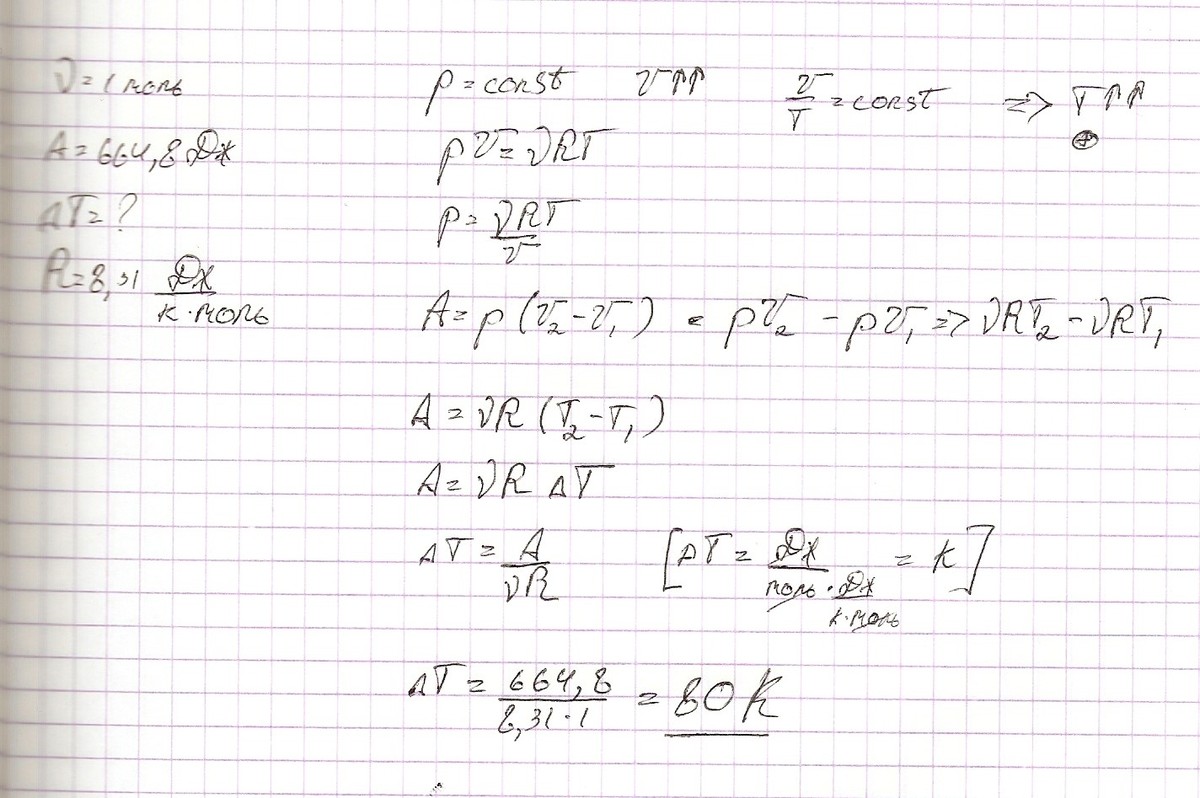 ν = 1 моль
A = 664,8 Дж
ΔT = ?
R = 8,31 Дж/К·моль
p = const V↑↑ V/T = const => T↑↑
⊕
pV = νRT
p = νRT/V
A = p (V₂ - V₁) = pV₂ - pV₁ => νRT₂ - νRT₁
A = νR (T₂ - T₁)
A = νR ΔT
ΔT = A/νR [ΔT = Дж/моль·Дж/К·моль = K]
ΔT = 664,8/8,31·1 = 80 K